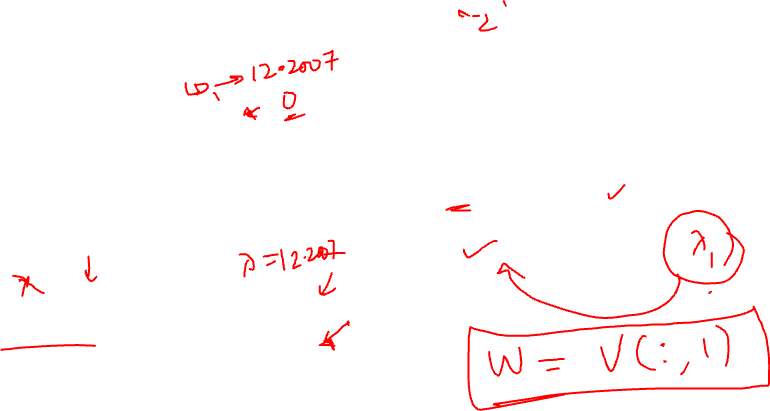 "-2"
ω₁→12.2007
0
λ=12.207
λ₁
W = V(:,1)